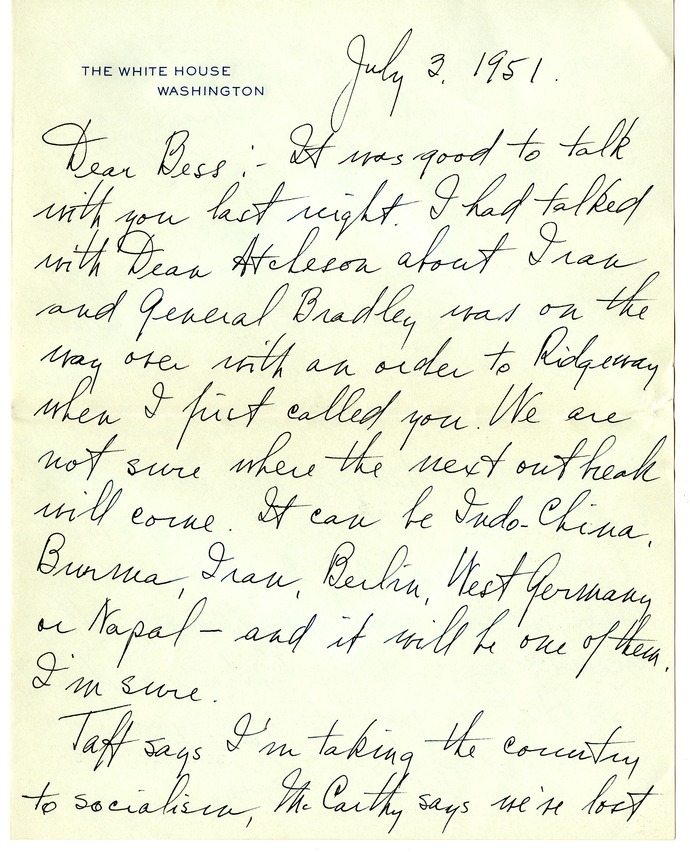 THE WHITE HOUSE
WASHINGTON
July 3, 1951.
Dear Bess:- It was good to talk
with you last night. I had talked
with Dean Atcheson about Iran
and General Bradley was on the
way over with an order to Ridgeway
when I first called you. We are
not sure where the next outbreak
will come. It can be Indo-China,
Burma, Iran, Berlin, West Germany
or Napal - and it will be one of them.
I'm sure.
Taft says I'm taking the country
to socialism, McCarthy says we've lost